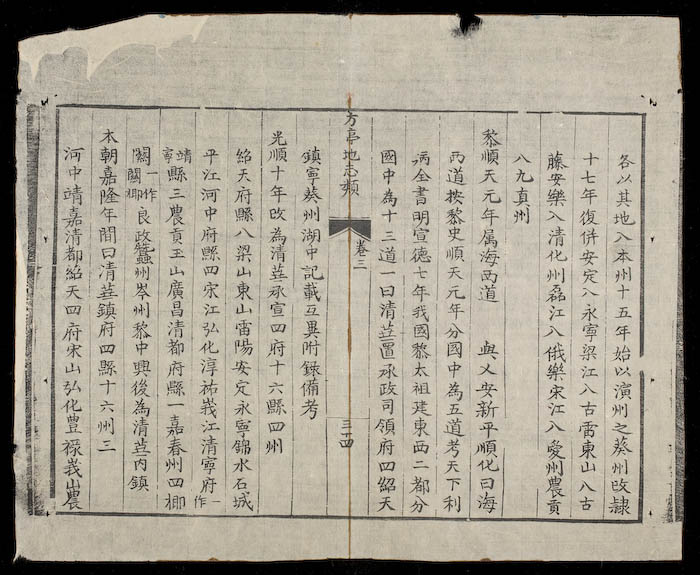 各以其地入本州十五年始以演州之葵州改隷
十七年復併安定入永寧梁江入古雷東山入古
藤安樂入清化州磊江入俄樂宋江入愛州農貢
入九真州
黎順天元年属海西道 與乂安新平順化曰海
西道按黎史順天元年分國中為五道考天下利
病全書明宣德七年我國黎太祖建東西二都分
國中為十三道一曰清𦬑置承政司領府四紹天
方亭地志類 卷三 三十四
鎮寧葵州湖中記載互異附録備考
光順十年改為清𦬑承宣四府十六縣四州
紹天府縣八梁山東山雷陽安定永寧錦水石城
平江河中府縣四宋江弘化淳祐峩江清寧府一作
靖寧縣三農貢玉山廣昌清都府縣一嘉春州四榔
關一作關榔良政蠶州岑州黎中興後為清𦬑内鎮
本朝嘉隆年間曰清𦬑鎮府四縣十六州三
河中靖嘉清都紹天四府宋山弘化豊禄峩山農